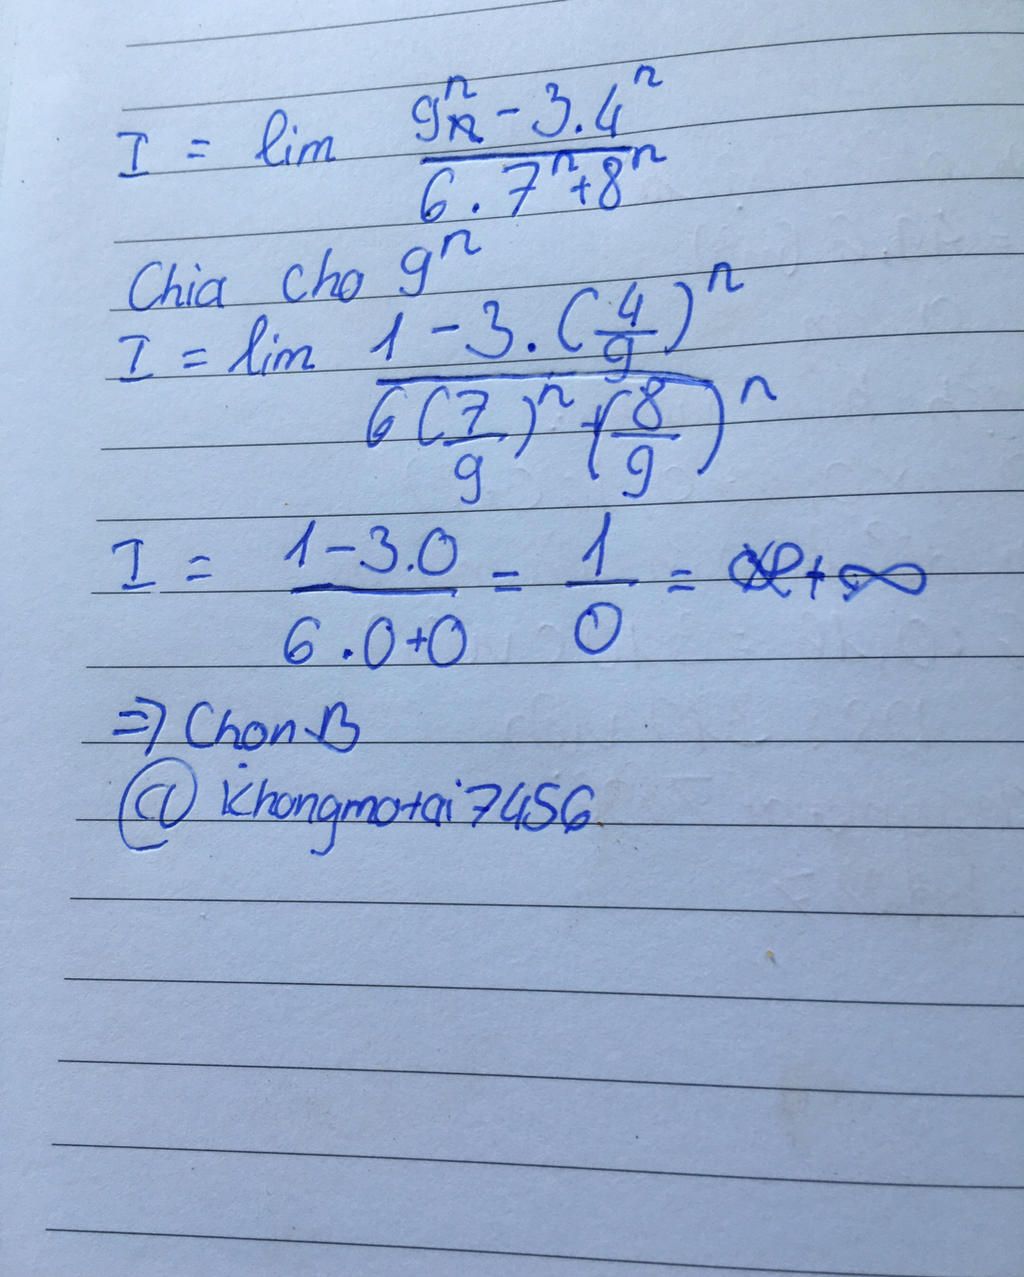 I = lim (9^n - 3.4^n)/(6.7^n+8^n)
Chia cho 9^n
I = lim (1-3.(4/9)^n)/(6(7/9)^n+(8/9)^n)
I = (1-3.0)/(6.0+0) = 1/0 = +∞
=> Chọn B
@ khongmotai7456